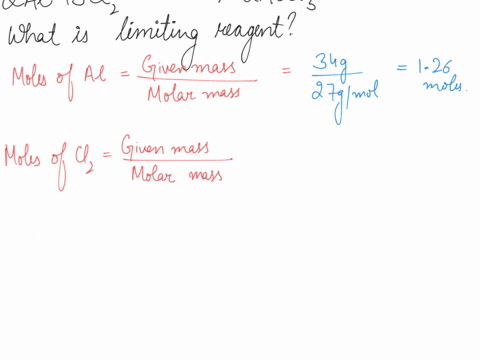 What is limiting reagent?
Moles of Al = Given mass / Molar mass = 34g / 27g/mol = 1.26 moles.
Moles of Cl2 = Given mass / Molar mass